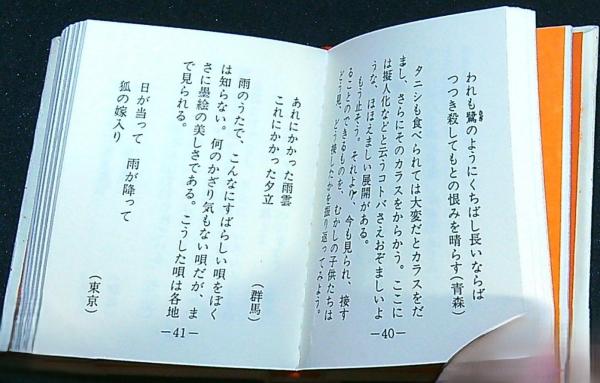 われも鷺のようにくちばし長いならば
つつき殺してもとの恨みを晴らす(青森)
タニシも食べられては大変だとカラスをだ
まし、さらにそのカラスをからかう。ここに
は擬人化などと云うコトバさえおぞましいよ
うな、ほほえましい展開がある。
もう止そう。それより、今も見られ、接す
ることのできるものを、むかしの子供たちは
どう見、どう接したかを振り返ってみよう。
—40—
あれにかかった雨雲
これにかかった夕立
(群馬)
雨のうたで、こんなにすばらしい唄をぼく
は知らない。何のかざり気もない唄だが、ま
さに墨絵の美しさである。こうした唄は各地
で見られる。
日が当って 雨が降って
狐の嫁入り
(東京)
—41—